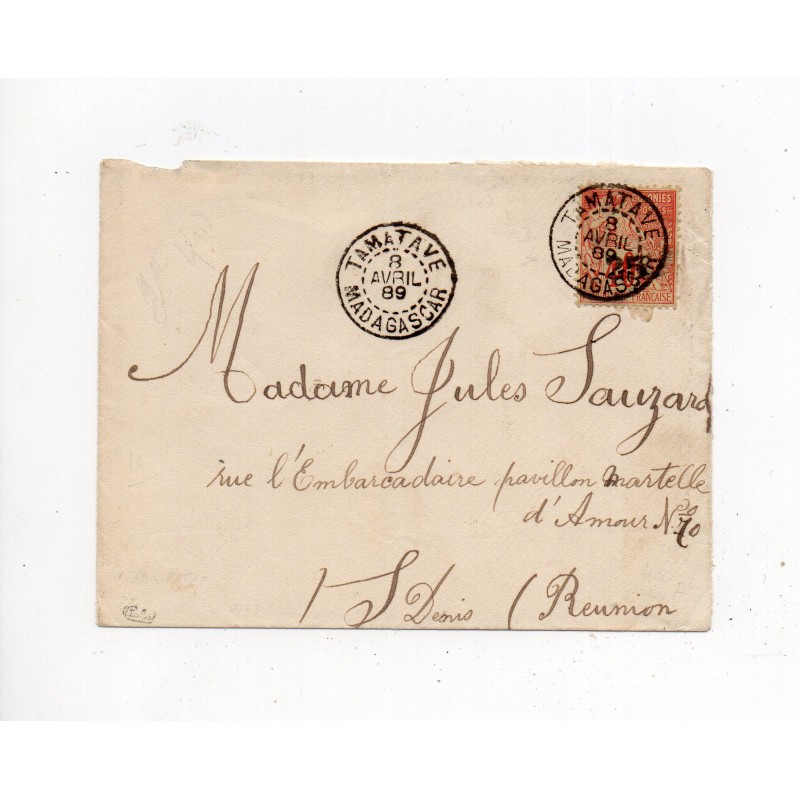 TAMATAVE
8
AVRIL
89
MADAGASCAR
TAMATAVE
8
AVRIL
89
MADAGASCAR
COLONIES
25
FRANÇAISE
Madame Jules Sauzard
rue l'Embarcadaire pavillon martelle
d'Amour No 70
St Denis (Reunion